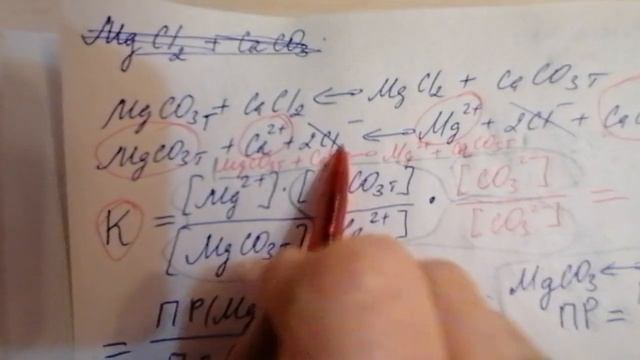 MgCl₂ + CaCO₃
MgCO₃т + CaCl₂ ⟷ MgCl₂ + CaCO₃т
MgCO₃т + Ca²⁺ + 2Cl⁻ ⟷ Mg²⁺ + 2Cl⁻ +
MgCO₃т + ⟷ Mg²⁺ + CaCO₃т
[Mg²⁺] · [ CO₃т] [CO₃²⁻]
K = · =
[MgCO₃т] ²⁺] [CO₃²⁻]
MgCO₃ ⟷
= ПР(Mg ПР =